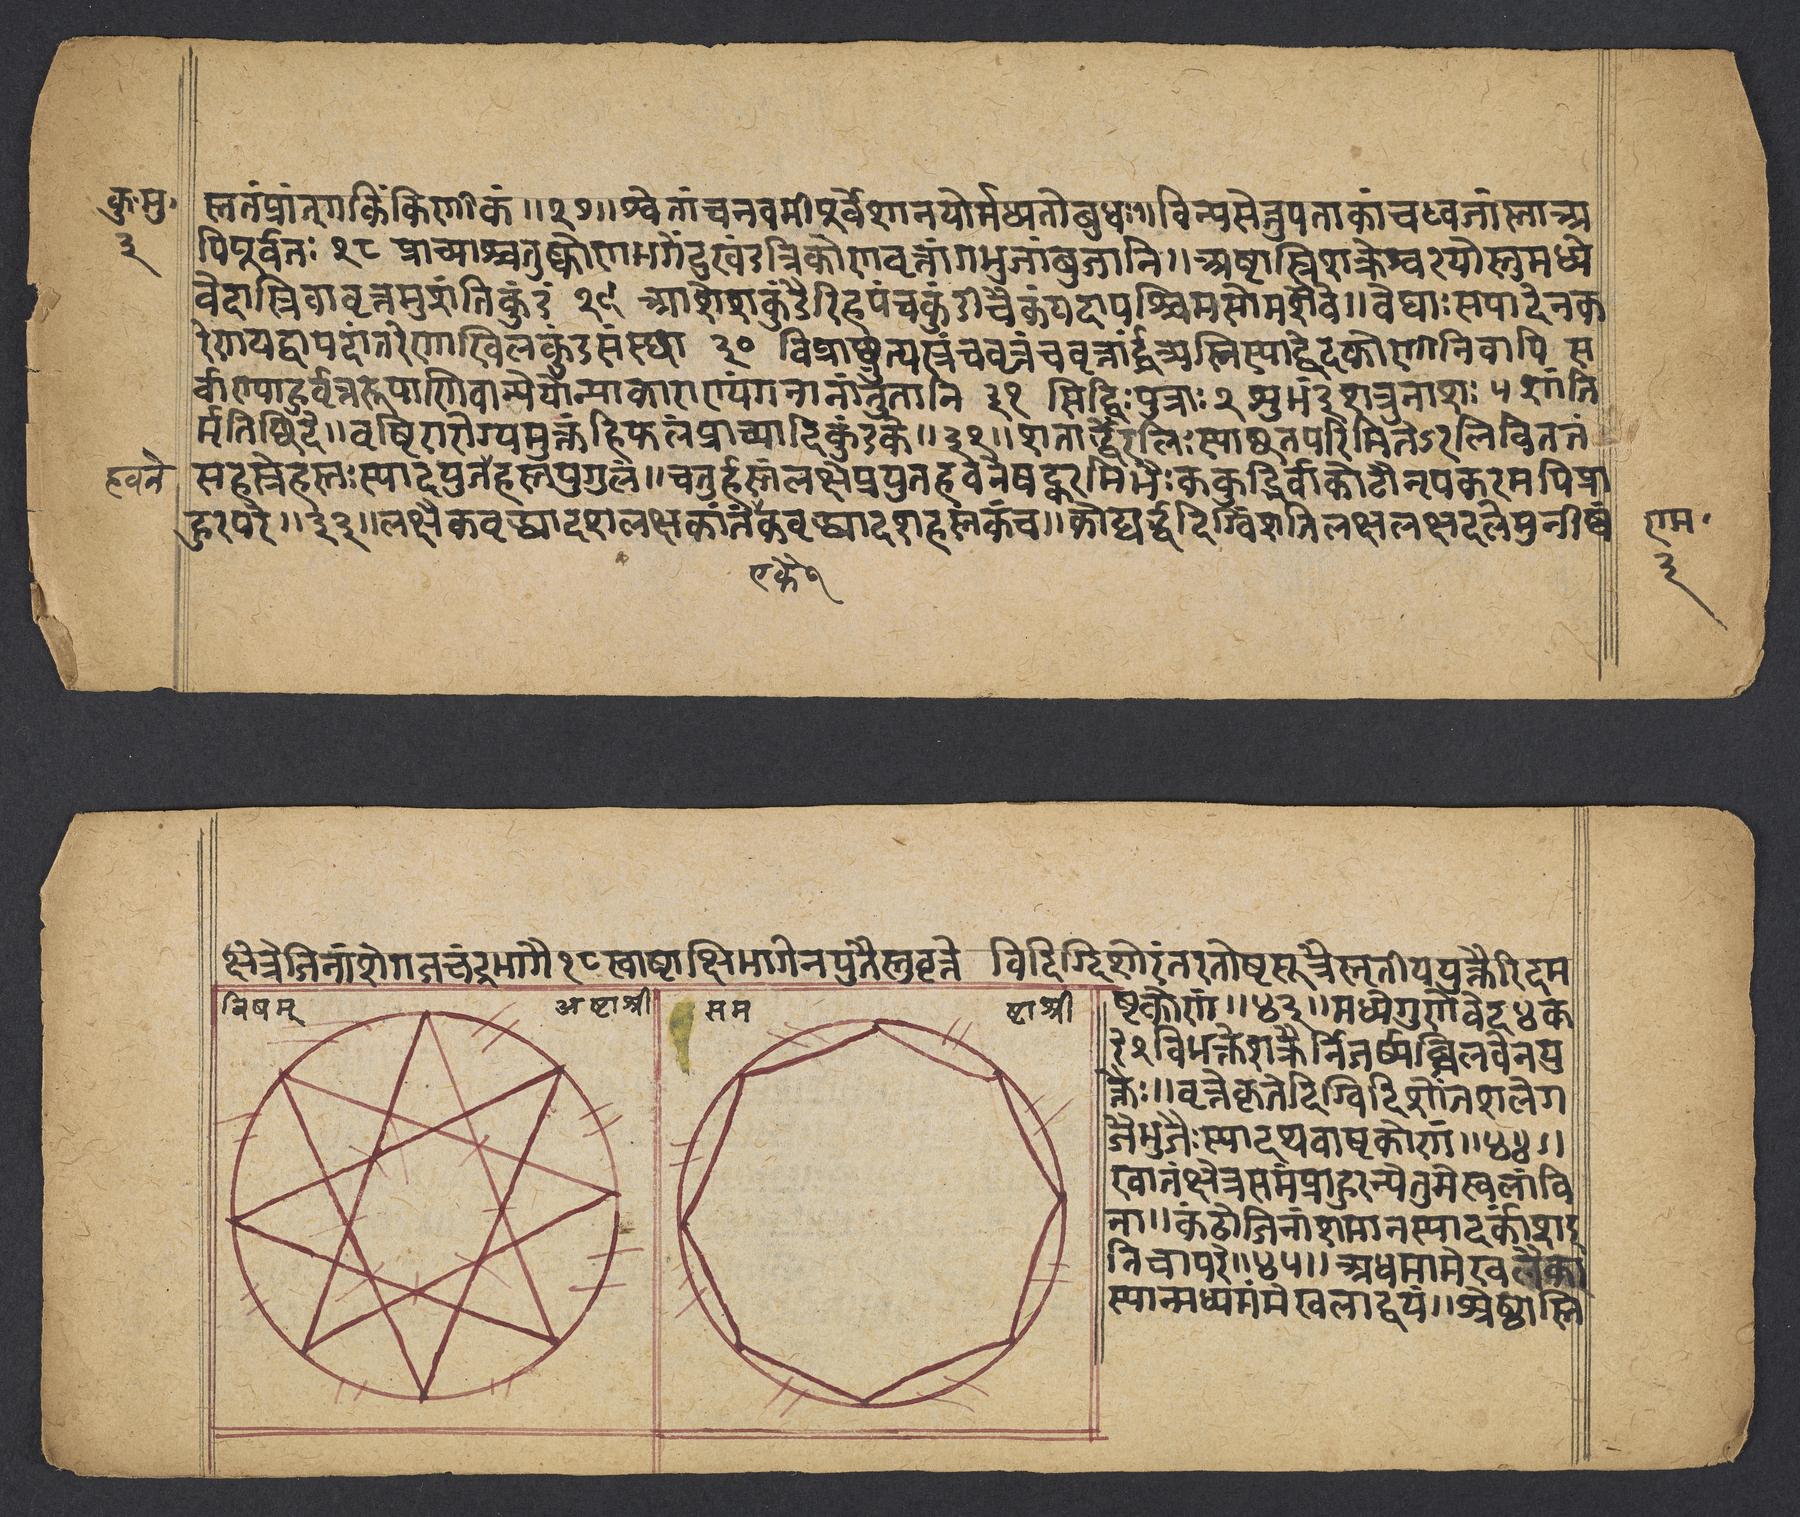 कुं.मु.
३
स्ततंप्रांतगकिंकिणीकं॥२७॥श्वेतांचनवमीपूर्वेशानयोर्मध्यतोबुधः॥विन्यसेत्तुपताकांचध्वजांस्तान्अ
पिपूर्वतः २८ प्राच्याश्चतुष्कोणभगेंदुखंडत्रिकोणवृत्तांगभुजांबुजानि॥अष्टास्रिशक्रेश्वरयोस्तुमध्ये
वेदास्रिवावृत्तमुशंतिकुंडं २९ आशेशकुंडैरिहपंचकुंडीचैकंयदापश्चिमसोमशैवे॥वेद्याःसपादेनक
रेणयद्वापदांतरेणाखिलकुंडसंस्था ३० विप्राच्छ्रुत्यस्रंचवृत्तंचवृत्तार्द्धंत्र्यस्रिस्याद्वेदकोणानिवापि स
र्वाण्याहुर्वृत्तरूपाणिवान्येयोन्याकाराण्यंगनानांतुतानि ३१ सिद्धिः१पुत्राः२शुभं३शत्रुनाशः ५शांति
र्मृतिश्छिदे॥वृष्टिरारोग्यमुक्तंहिफलंप्राच्यादिकुंडके॥३२॥शतार्द्धेरत्निःस्याच्छतपरिमितेऽरत्निविततं
हवने
सहस्रेहस्तःस्यादयुतहवनेहस्तयुगुलं॥चतुर्हस्तंलक्षेप्रयुतहवनेषट्करमितैःककुद्भिर्वाकोटौनृपकरमपिप्रा
हुरपरे॥३३॥लक्षैकवृद्ध्यादशलक्षकांतंकरैकवृद्ध्यादशहस्तकंच॥कोट्यर्द्धदिग्विंशतिलक्षलक्षदलेमुनीष्व
राम.
३
क्षेत्रेजिनांशेगजचंद्रभागैः१८स्वाष्टाक्षिभागेनयुतैस्तुवृत्ते विदिग्दिशोरंतरतोष्टसूत्रैस्तृतीययुक्तैरिदम
विषमम्
अष्टास्री
सम
ष्टास्री
ष्टकोणं॥४३॥मध्येगुणेवेद४क
रे२विभक्तेशक्रैर्निजर्ष्यब्धिलवेनयु
क्तैः॥वृत्तेकृतेदिग्विदिशोंतरालेग
जैर्भुजैःस्यादथवाष्टकोणं॥४४॥
खातंक्षेत्रसमंप्राहुरन्येतुमेखलांवि
ना॥कंठोजिनांशमानस्यादर्कांशइ
तिचापरे॥४५॥अधमामेखलैका
स्यान्मध्यमंमेखलाद्वयं॥श्रेष्ठास्ति